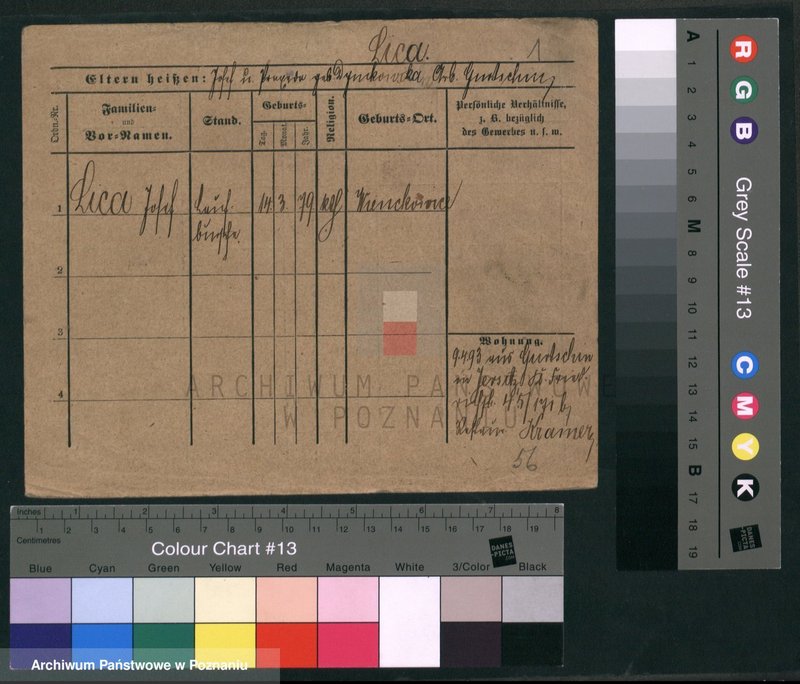 Lica. 1
Eltern heißen: Josef u. Praxeda geb. Arb. Gurtschin
Ordn.-Nr.
Familien-
und
Vor-Namen.
Stand.
Geburts-
Tag.
Monat.
Jahr.
Religion.
Geburts-Ort.
Persönliche Verhältnisse,
z. B. bezüglich
des Gewerbes u. s. w.
1 Lica Josef Lauf- 14 3 79 kath
bursche
2
3
4
Wohnung.
9493 aus Gurtschin
in Jersitz
Kramer
56
ARCHIWUM PAŃSTWOWE
W POZNANIU
Archiwum Państwowe w Poznaniu
Inches 1 2 3 4 5 6 7 8
Centimetres 1 2 3 4 5 6 7 8 9 10 11 12 13 14 15 16 17 18 19
Colour Chart #13
DANES
-PICTA
.COM
Blue Cyan Green Yellow Red Magenta White 3/Color Black
Grey Scale #13
R G B
C M Y K
A 1 2 3 4 5 6 M 8 9 10 11 12 13 14 15 B 17 18 19
DANES
-PICTA
.COM